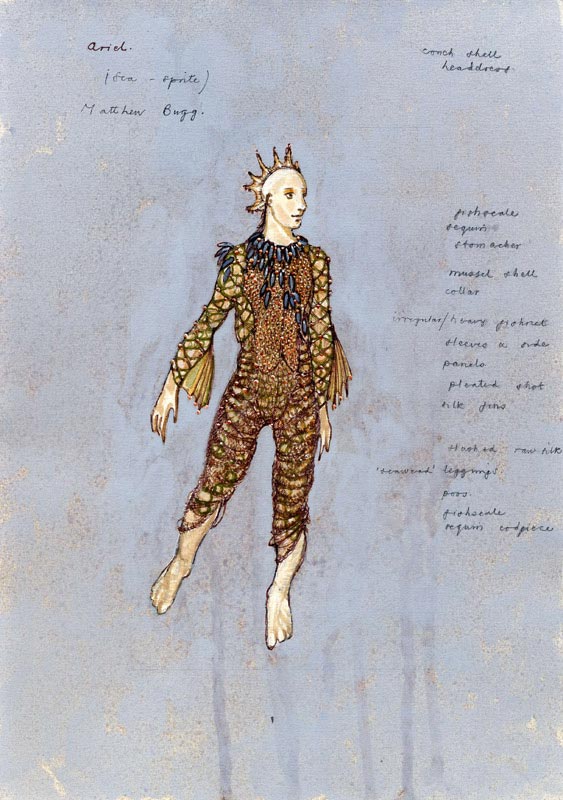 Ariel.
(Sea - sprite)
Matthew Bugg.
conch shell
headdress.
fishscale
sequin
stomacher
mussel shell
collar
irregular/heavy fishnet
sleeves & side
panels
pleated shot
silk fins
slashed raw silk
'seaweed' leggings.
poss.
fishscale
sequin codpiece